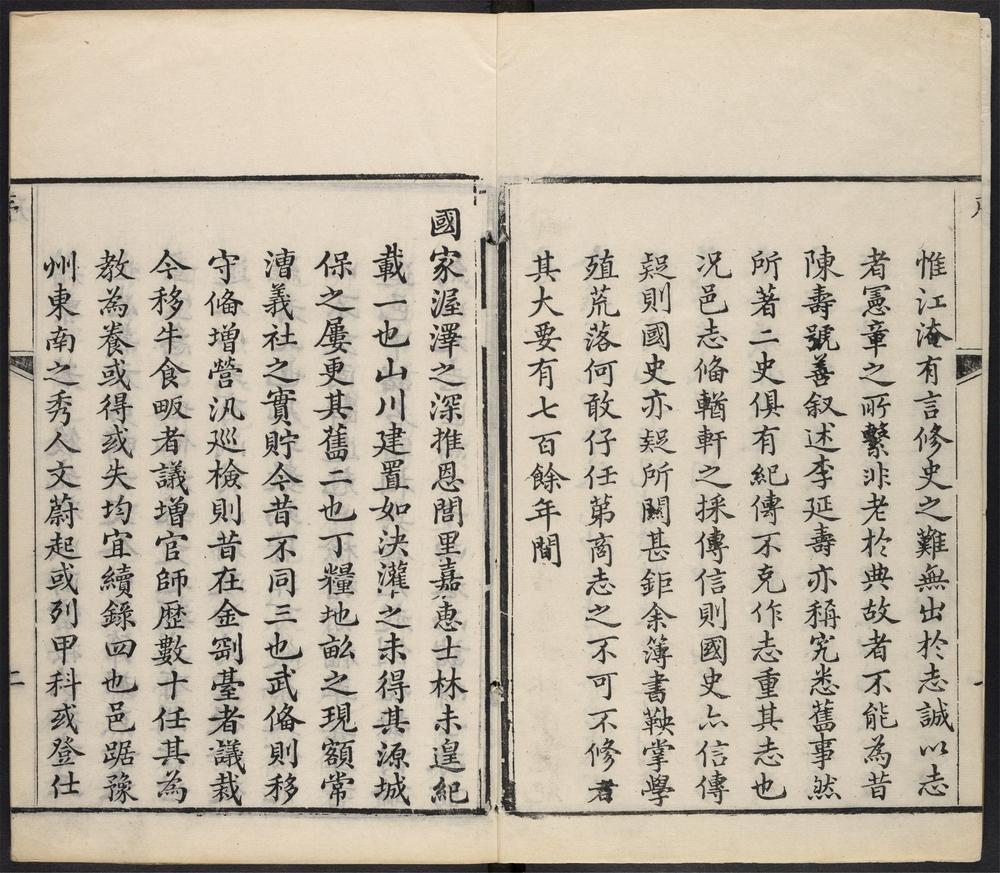 惟江淹有言修史之難無出於志誠以志
者憲章之所繫非老於典故者不能為昔
陳壽號善叙述李延壽亦稱究悉舊事然
所著二史俱有紀傳不克作志重其志也
况邑志俻輶軒之採傳信則國史亦信傳
疑則國史亦疑所關甚鉅余簿書鞅掌學
殖荒落何敢仔任苐商志之不可不修者
其大要有七百餘年間
國家渥澤之深推恩閭里嘉惠士林未遑紀
載一也山川建置如決灌之未得其源城
保之屢更其舊二也丁糧地畝之現額常
漕義社之實貯今昔不同三也武俻則移
守俻增營汛廵檢則昔在金剛臺者議裁
今移牛食畈者議增官師歴數十任其為
教為養或得或失均宜續錄四也邑踞豫
州東南之秀人文蔚起或列甲科或登仕
二